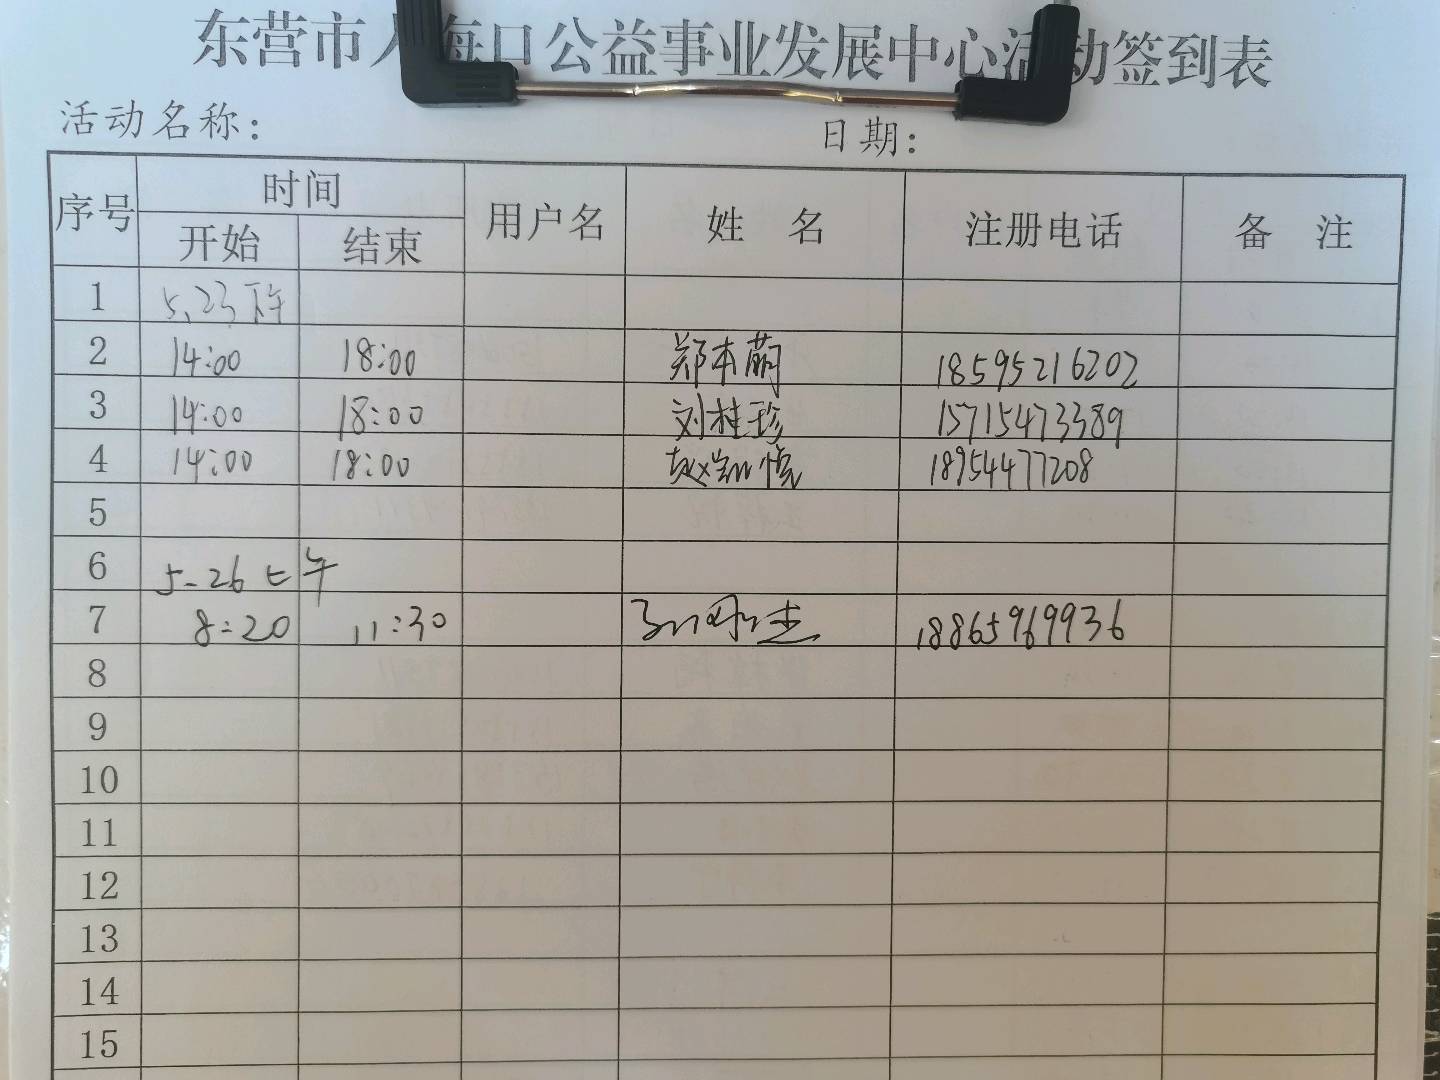 东营市入海口公益事业发展中心活动签到表
活动名称： 日期：
序号 时间 用户名 姓 名 注册电话 备 注
开始 结束
1 5.23下午
2 14:00 18:00 郑本萌 18595216202
3 14:00 18:00 刘桂珍 15715473389
4 14:00 18:00 赵 悦 18954477208
5
6 5-26上午
7 8:20 11:30 18865969936
8
9
10
11
12
13
14
15